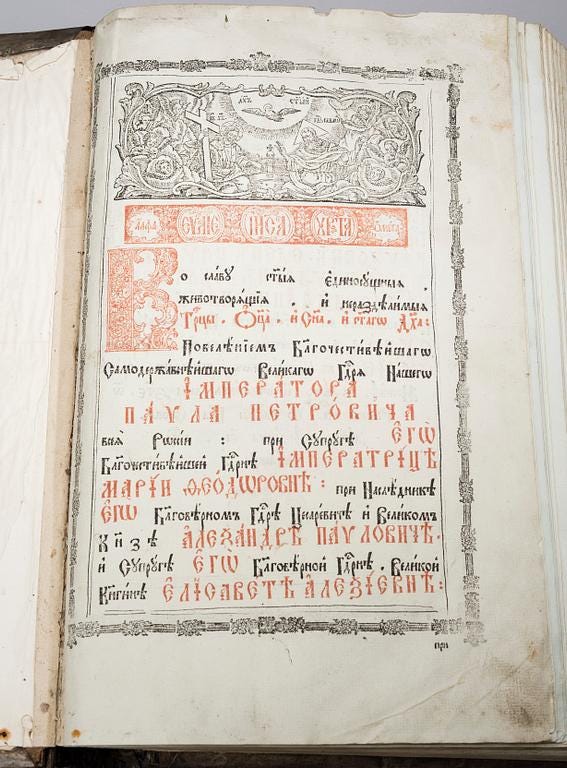 дх҃ъ ст҃ый
алфа І҆ИС҃Е І҆ИСА ХРТА ѡмега
Во славу ст҃ыѧ є҆диносущныѧ,
животворѧщїѧ, и҆ нераздѣлимыѧ
Трⷪ҇цы, Ѻ҆ц҃а, и҆ Сн҃а, и҆ ст҃агѡ Дх҃а:
Повелѣнїемъ Бл҃гочестивѣйшагѡ
Самодержавнѣйшагѡ Великагѡ Гдⷭ҇рѧ Нашегѡ
І҆МПЕРАТОРА
ПАѴЛА ПЕТРО́ВИЧА
всеѧ̀ Рѡссіи : при Супругѣ Є҆ГѠ̀
Бл҃гочестивѣйшей Гдⷭ҇рнѣ І҆МПЕРАТРИЦѢ
МАРІ́И ѲЕО́ДѠРОВНѢ : при Наслѣдникѣ
Є҆ГѠ̀ Бл҃говѣрномъ Гдⷭ҇рѣ Цесаревичѣ и҆ Великомъ
Кн҃зѣ А҆ЛЕѮА́НДРѢ ПА́ѴЛОВИЧѢ,
и҆ Супругѣ Є҆ГѠ̀ Бл҃говѣрной Гдⷭ҇рнѣ, Великой
Кнѧгинѣ Є҆ЛІСАВЕ́ТѢ А҆ЛЕѮІ́ЕВНѢ:
при